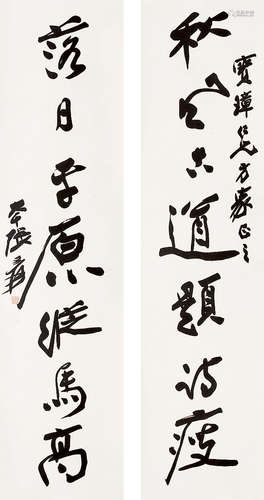 秋風古道題詩瘦
寶璋仁兄方家正之
落日平原縱馬高
大千張爰